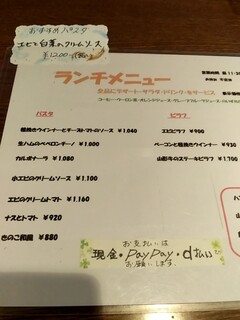 おすすめパスタ
エビと白菜のクリムソース
¥1200
ランチメニュー
営業時間 昼 11:30
全品にデザート・サラダ・ドリンク
サービス
コーヒー・ウーロン茶・オレンジジュース・グレープフルーツジュース
パスタ
粗挽きウインナーとチーズトマトのソース ¥1.040
生ハムのペペロンチーノ ¥1.000
カルボナーラ ¥1.080
小エビのクリームソース ¥1.100
エビのクリームトマト ¥1.160
ナスとトマト ¥920
きのこ和風 ¥880
ピラフ
エビピラフ ¥900
ベーコンと粗挽きウインナー ¥930
山形牛のステーキピラフ ¥1.700
お支払いは
現金・PayPay・d払い
お願いします。